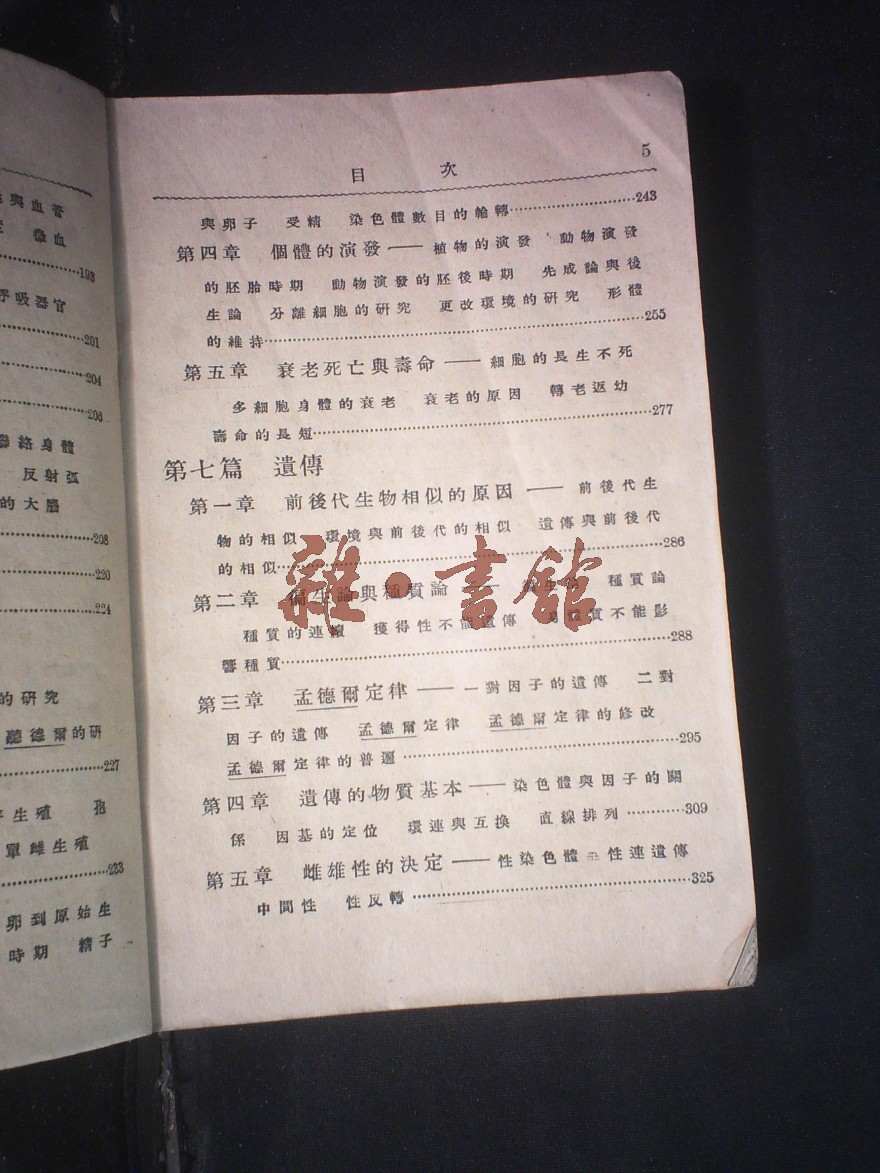 與血管
微血
193
呼吸器官
201
204
206
聯絡身體
反射弧
的大腦
208
220
224
的研究
聽德爾的研
227
生殖 孢
單雌生殖
233
卵到原始生
時期 精子
目 次 5
與卵子 受精 染色體數目的輪轉…………………243
第四章 個體的演發——植物的演發 動物演發
的胚胎時期 動物演發的胚後時期 先成論與後
生論 分離細胞的研究 更改環境的研究 形體
的維持…………………255
第五章 衰老死亡與壽命——細胞的長生不死
多細胞身體的衰老 衰老的原因 轉老返幼
壽命的長短…………………277
第七篇 遺傳
第一章 前後代生物相似的原因——前後代生
物的相似 環境與前後代的相似 遺傳與前後代
的相似…………………286
第二章 偏生論與種質論—— 種質論
種質的連續 獲得性不能遺傳 身體質不能影
響種質…………………288
第三章 孟德爾定律——一對因子的遺傳 二對
因子的遺傳 孟德爾定律 孟德爾定律的修改
孟德爾定律的普遍…………………295
第四章 遺傳的物質基本——染色體與因子的關
係 因基的定位 環連與互換 直線排列…………309
第五章 雌雄性的決定——性染色體 性連遺傳
中間性 性反轉…………………325
雜·書館